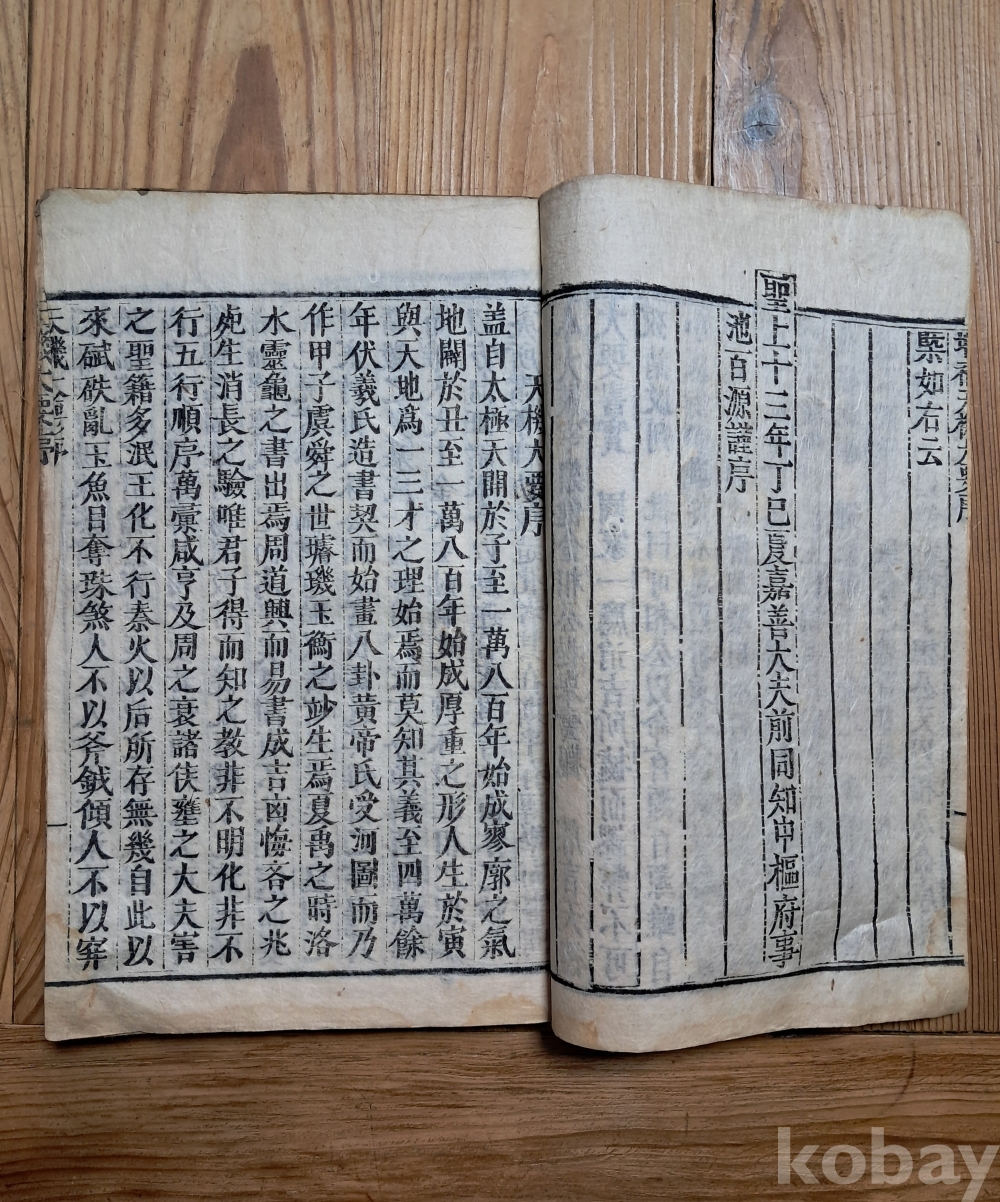 槩如右云
聖上十三年丁巳夏嘉善大夫前同知中樞府事
池百源謹序
天機大要序
盖自太極天開於子至一萬八百年始成寥廓之氣
地闢於丑至一萬八百年始成厚重之形人生於寅
與天地爲一三才之理始焉而莫知其義至四萬餘
年伏羲氏造書契而始畫八卦黃帝氏受河圖而乃
作甲子虞舜之世璿璣玉衡之妙生焉夏禹之時洛
水靈龜之書出焉周道興而易書成吉凶悔吝之兆
死生消長之驗唯君子得而知之教非不明化非不
行五行順序萬彙咸亨及周之衰諸侯壅之大夫害
之聖籍多泯王化不行秦火以后所存無幾自此以
來碔砆亂玉魚目奪珠煞人不以斧鉞傾人不以穽
天機大要序
kobay